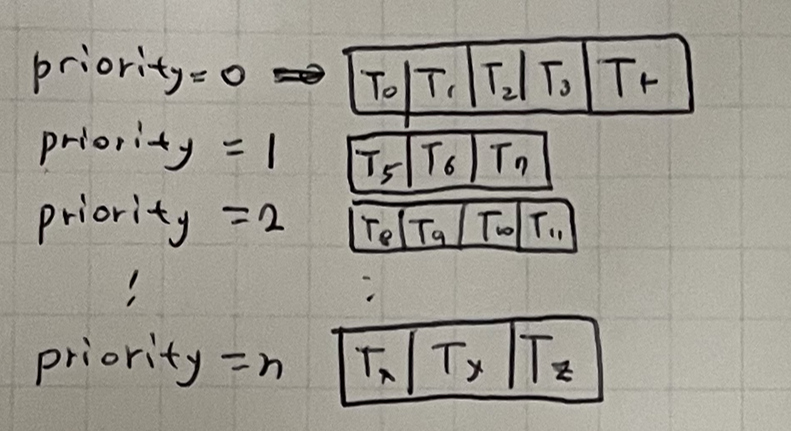 priority = 0 ⇒ T0 T1 T2 T3 T4
priority = 1 T5 T6 T7
priority = 2 T8 T9 T10 T11
⋮ ⋮
priority = n Tx Ty Tz